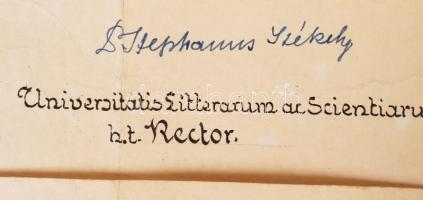 Dr Stephanus Székely
Universitatis Litterarum ac Scientiaru
h.t. Rector.